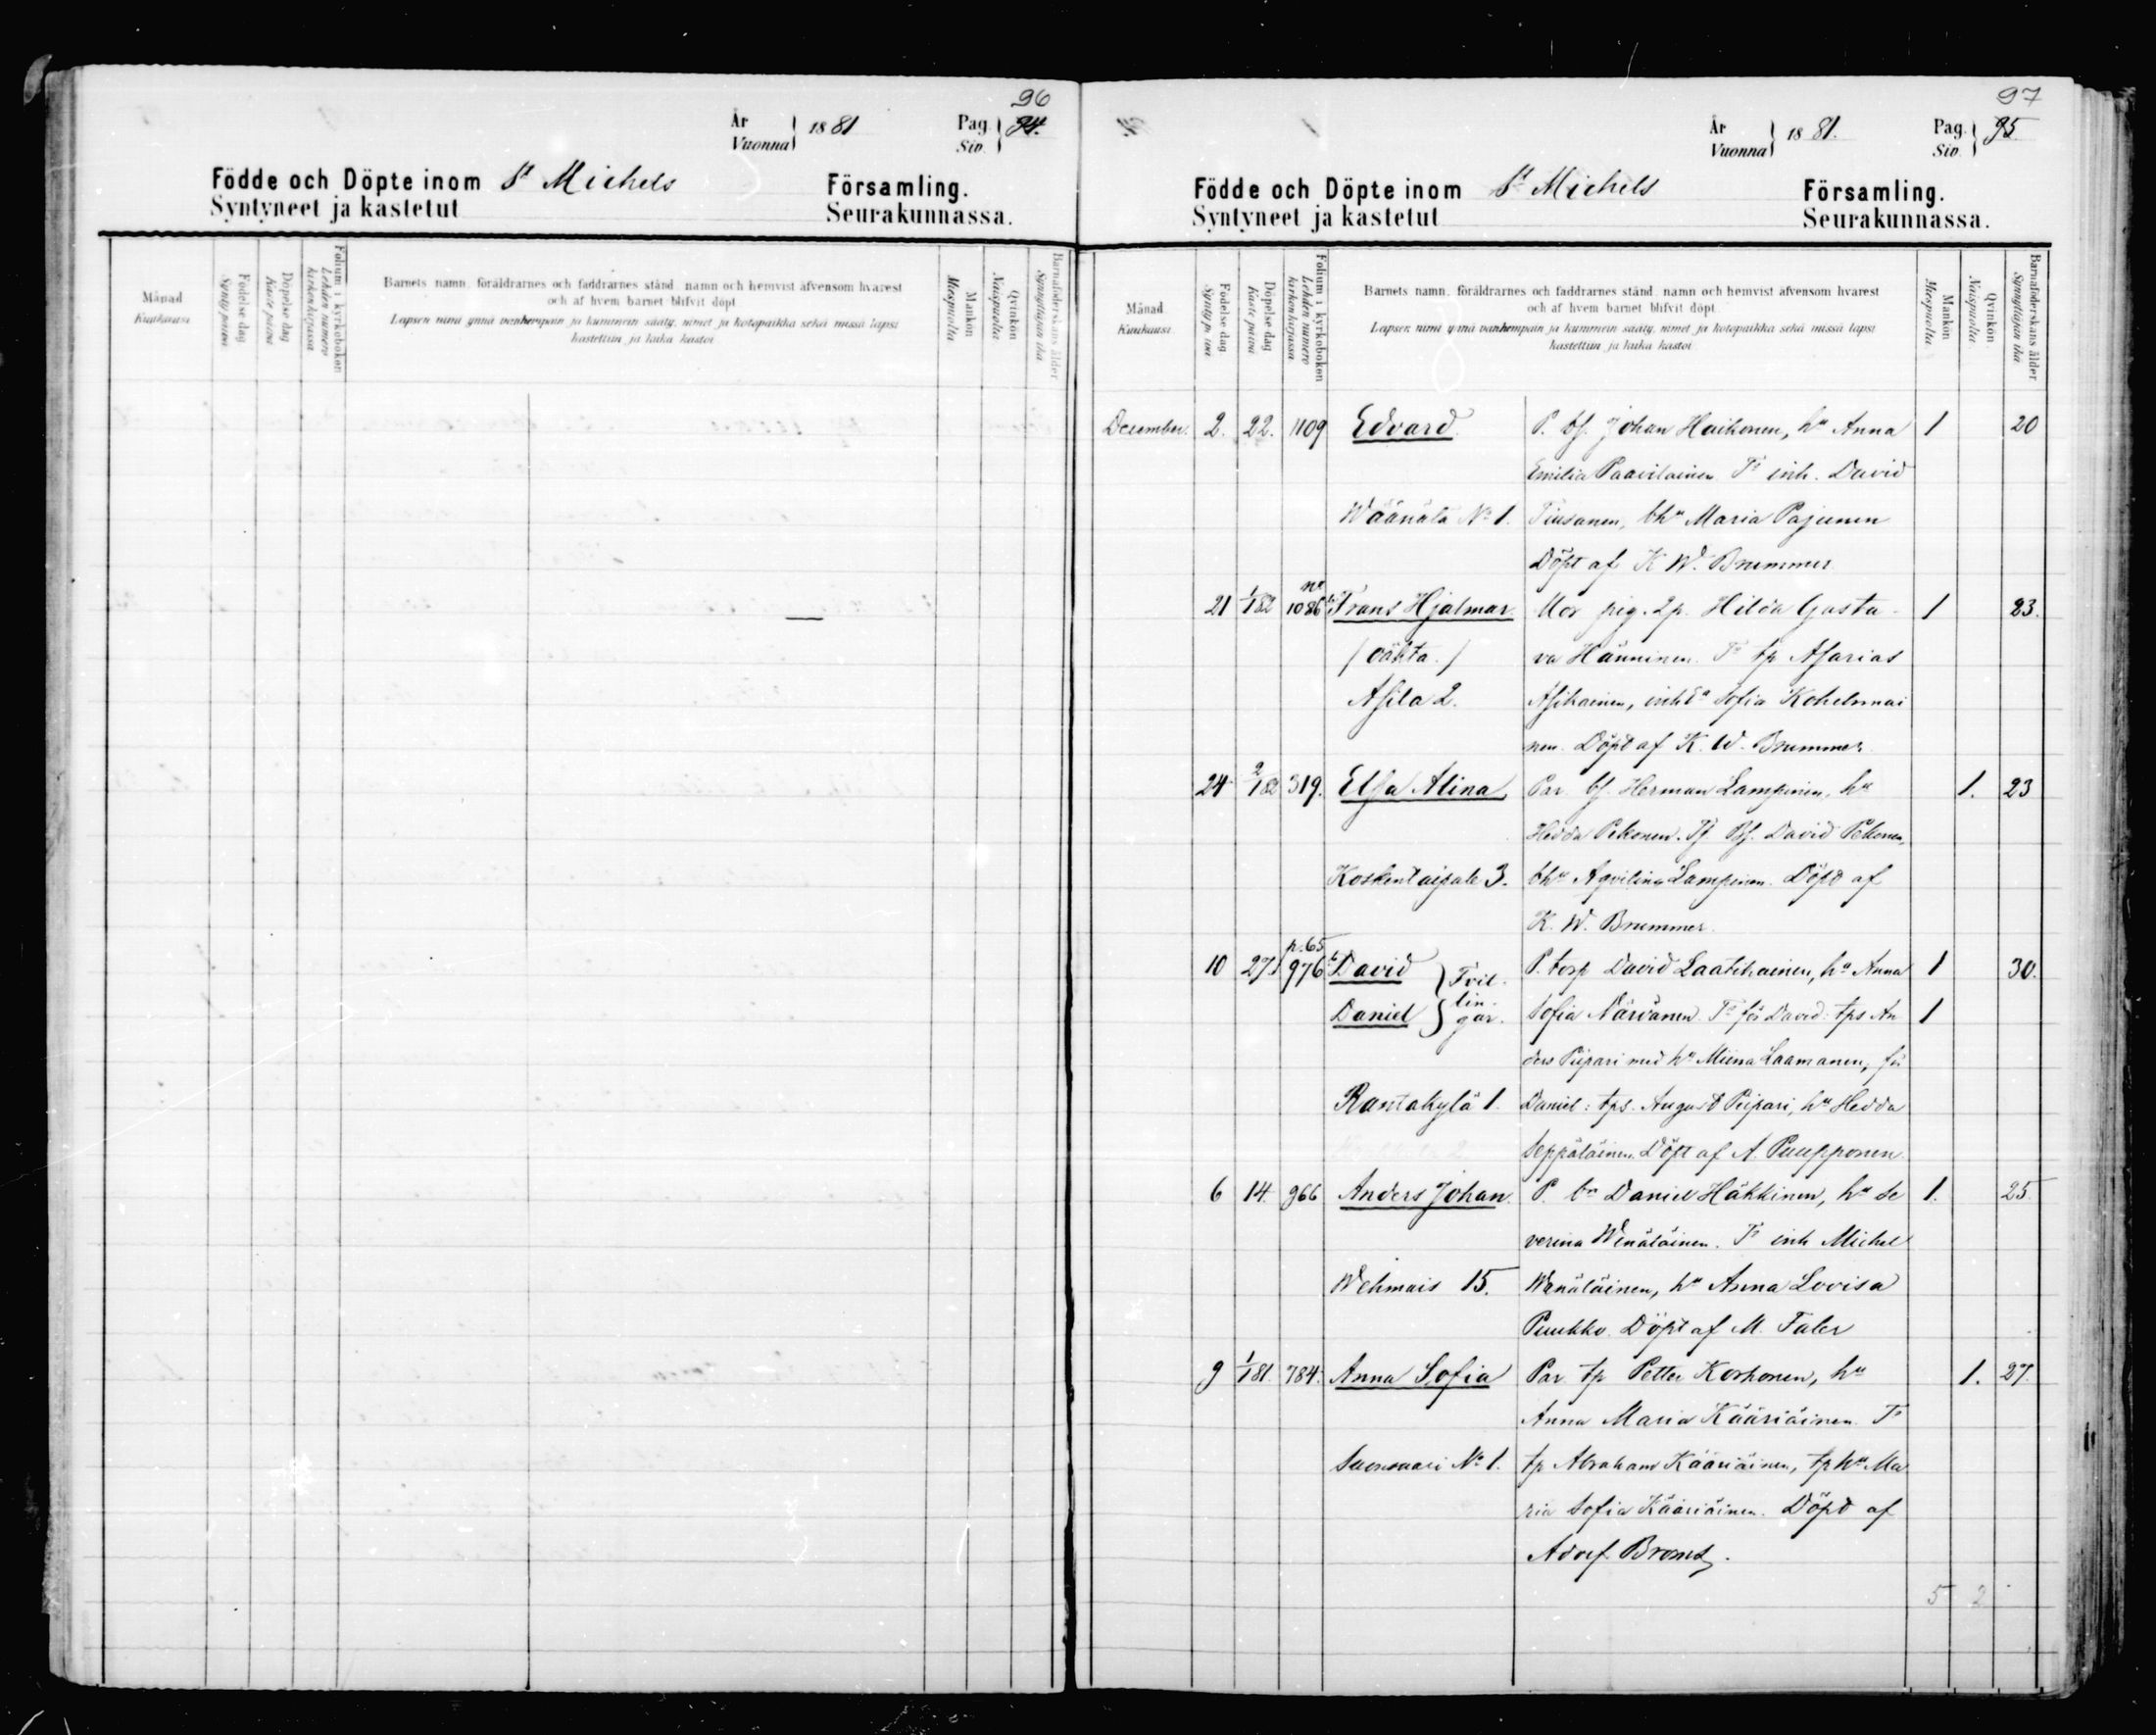 96
År
Vuonna } 1881 Pag. } 94.
Siv.
Födde och Döpte inom St Michels Församling.
Syntyneet ja kastetut Seurakunnassa.
Månad
Kuukausi
Födelse dag
Synty päivä
Döpelse dag
Kaste päivä
Folium i kyrkoboken
Lehden numero kirkonkirjassa
Barnets namn, föräldrarnes och faddrarnes stånd, namn och hemvist äfvensom hvarest
och af hvem barnet blifvit döpt.
Lapsen nimi ynnä vanhempain ja kummein sääty, nimet ja kotopaikka sekä missä lapsi
kastettiin ja kuka kastoi.
Mankön
Miespuolia
Qvinkön
Naispuolia
Barnaföderskans ålder
Synnyttäjän ikä
97
År
Vuonna } 1881. Pag. } 95
Siv.
Födde och Döpte inom St Michels Församling.
Syntyneet ja kastetut Seurakunnassa.
Månad
Kuukausi
Födelse dag
Synty päivä
Döpelse dag
Kaste päivä
Folium i kyrkoboken
Lehden numero kirkonkirjassa
Barnets namn, föräldrarnes och faddrarnes stånd, namn och hemvist äfvensom hvarest
och af hvem barnet blifvit döpt.
Lapsen nimi ynnä vanhempain ja kummein sääty, nimet ja kotopaikka sekä missä lapsi
kastettiin ja kuka kastoi.
Mankön
Miespuolia
Qvinkön
Naispuolia
Barnaföderskans ålder
Synnyttäjän ikä
December. 2. 22. 1109 Edvard. P. bf. Johan Haikonen, hu Anna 1 20
Emilia Paavilainen Ts inh. David
Wäänälä No 1. Tiusanen, bhu Maria Pajunen
Döpt af K W. Brummer
21 1/1 82 1086 Frans Hjalmar. Mor pig. Ip. Hilda Gusta- 1 23.
/oäkta./ va Hänninen. Ts tp Asarias
Asila 2. Asikainen, Sofia Kohelmai
nen. Döpt af K. W. Brummer.
24 2/1 82 319. Elsa Alina, Par. bf. Herman Lampinen, hu 1. 23
Hedda Pekonen. Tf Bf. David Pekonen,
Koskentaipale 3. bhu Aqvilina Lampinen. Döpt af
K. W. Brummer.
p. 65
10 27. 976 David } Tvil- P. torp David Laatikainen, hu Anna 1 30.
Daniel } lingar. Sofia Närvänen. Ts för David: tps An 1
ders Piipari med hu Miina Laamanen, för
Rantakylä 1. Daniel: tps. August Piipari, hu Hedda
Seppäläinen. Döpt af A. Puupponen.
6 14. 966 Anders Johan. P. bn Daniel Häkkinen, hu Se 1. 25.
verina Wenäläinen. Ts inh Michel
Wehmais 15. Wenäläinen, hu Anna Lovisa
Puukko. Döpt af M. Faler
9 1/1 81. 784. Anna Sofia Par. tp Petter Korhonen, hu 1. 27.
Anna Maria Kääriäinen Ts
Suonsaari No 1. tp Abraham Kääriäinen, tphu Ma
ria Sofia Kääriäinen. Döpt af
Adolf Broms.
5 2